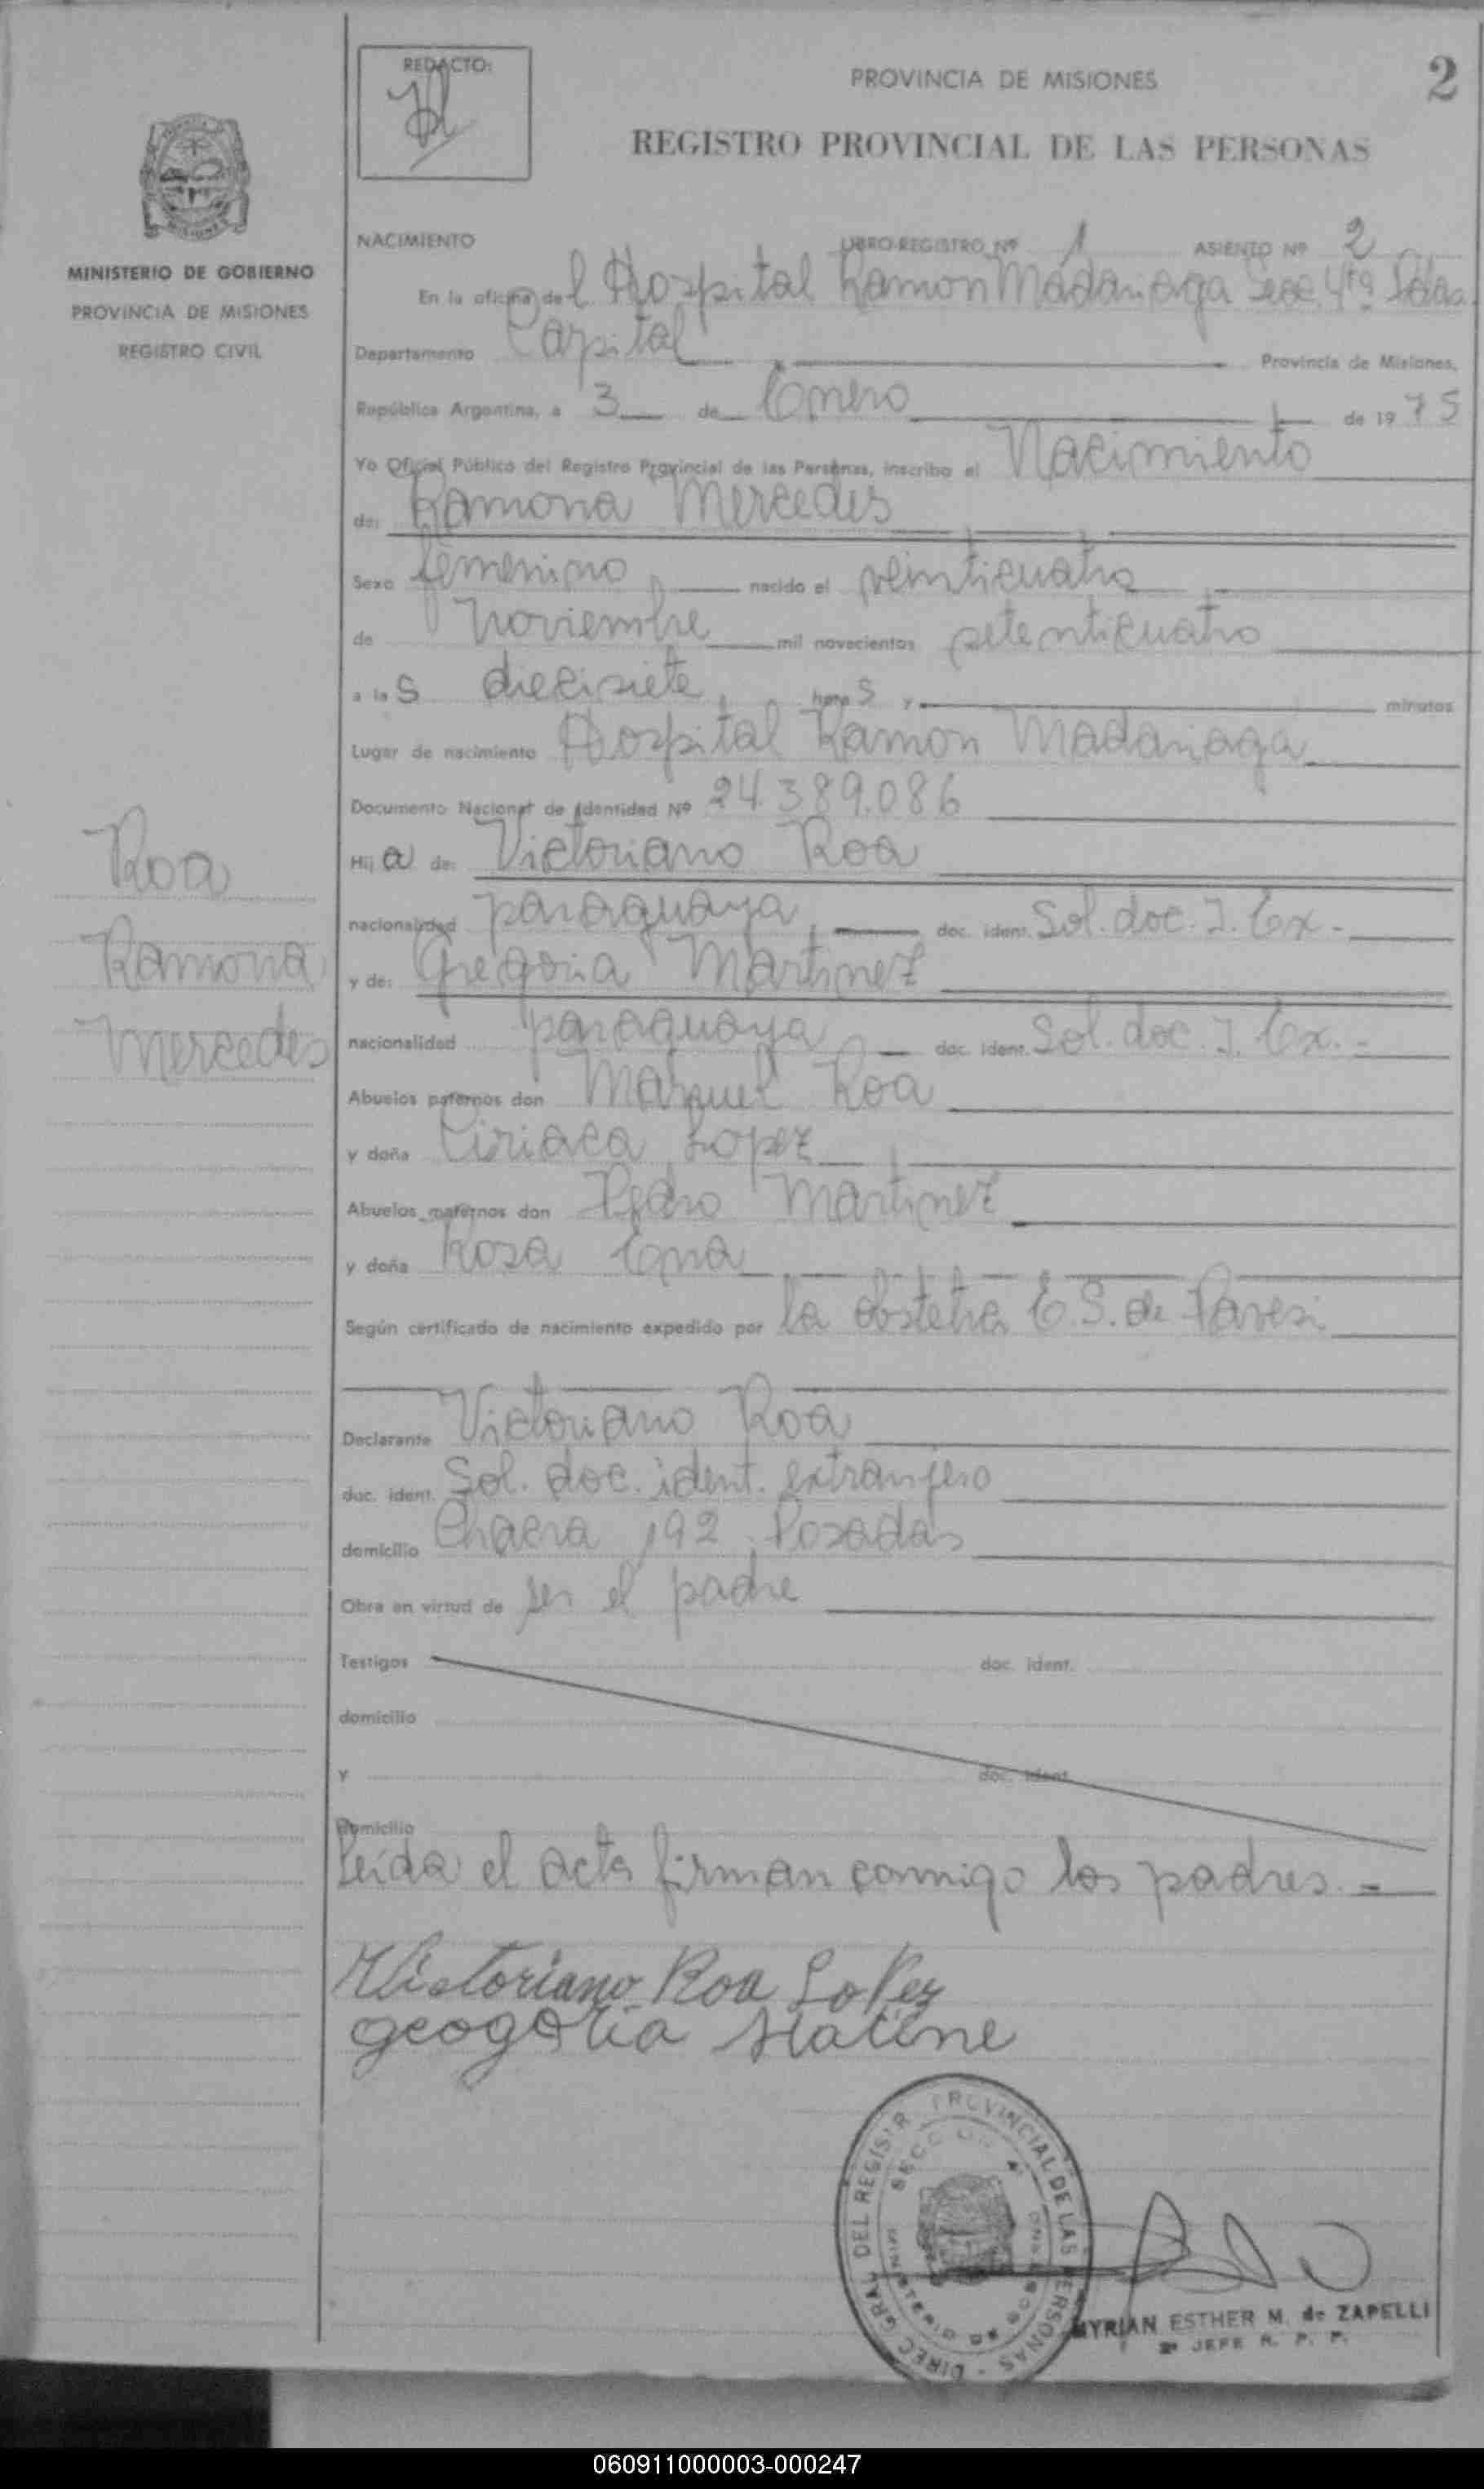 REDACTO:
PROVINCIA DE MISIONES
2
REGISTRO PROVINCIAL DE LAS PERSONAS
MINISTERIO DE GOBIERNO
PROVINCIA DE MISIONES
REGISTRO CIVIL
NACIMIENTO LIBRO-REGISTRO Nº 1 ASIENTO Nº 2
En la oficina del Hospital Ramon Madariaga Secc. 4ta Pdas
Departamento Capital Provincia de Misiones,
República Argentina, a 3 de Enero de 1975
Yo Oficial Público del Registro Provincial de las Personas, inscribo el Nacimiento
de: Ramona Mercedes
Sexo femenino nacido el veinticuatro
de Noviembre mil novecientos setenticuatro
a las diecisiete horas y minutos
Lugar de nacimiento Hospital Ramon Madariaga
Documento Nacional de Identidad Nº 24.389.086
Hija de: Victoriano Roa
nacionalidad paraguaya doc. ident. Sol. doc. I. Ex.-
y de: Gregoria Martinez
nacionalidad paraguaya doc. ident. Sol. doc. I. Ex.-
Roa
Ramona
Mercedes
Abuelos paternos don Manuel Roa
y doña Ciriaca Lopez
Abuelos maternos don Pedro Martinez
y doña Rosa
Según certificado de nacimiento expedido por la obstetra E. S. de Pavesi
Declarante Victoriano Roa
doc. ident. Sol. doc. ident. extranjero
domicilio Chacra 192 Posadas
Obra en virtud de ser el padre
Testigos doc. ident.
domicilio
y doc. ident.
Domicilio
Leída el acta firman conmigo los padres.-
Victoriano Roa Lopez
geogoria Matine
DIREC. GRAL. DEL REGISTR. PROVINCIAL DE LAS PERSONAS
SECCION 4
MINISTERIO DE GOBIERNO
MYRIAN ESTHER M. de ZAPELLI
2º JEFE R. P. P.
060911000003-000247